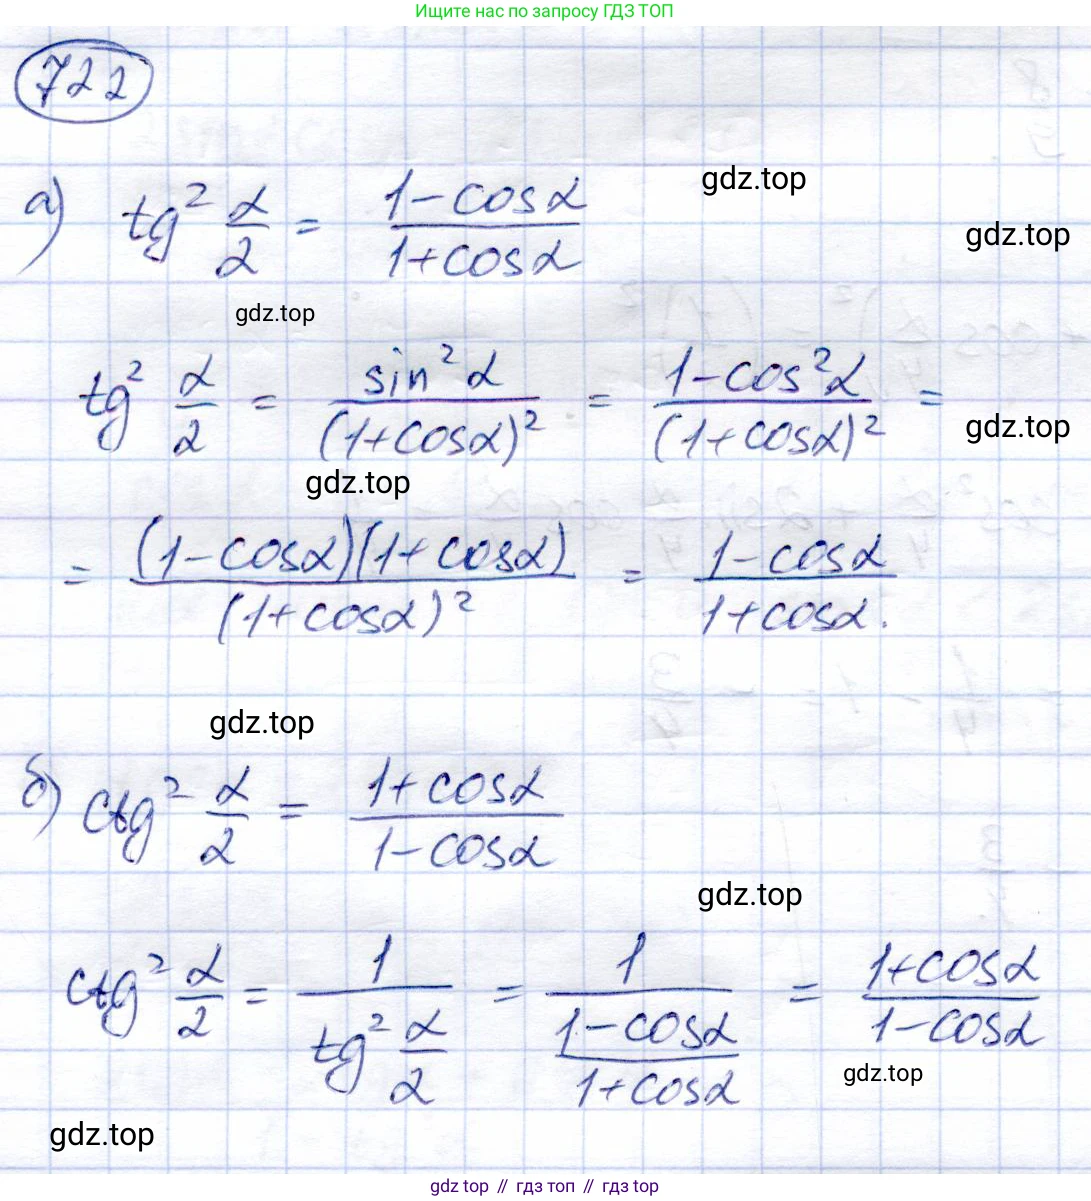 Ищите нас по запросу ГДЗ ТОП
722
а) tg² α/2 = (1-cosα)/(1+cosα)
gdz.top
gdz.top
gdz.top
tg² α/2 = sin²α/(1+cosα)² = (1-cos²α)/(1+cosα)² =
gdz.top
gdz.top
= (1-cosα)(1+cosα)/(1+cosα)² = (1-cosα)/(1+cosα).
gdz.top
б) ctg² α/2 = (1+cosα)/(1-cosα)
gdz.top
ctg² α/2 = 1/(tg² α/2) = 1/((1-cosα)/(1+cosα)) = (1+cosα)/(1-cosα)
gdz.top
gdz.top
gdz.top // гдз топ // гдз top